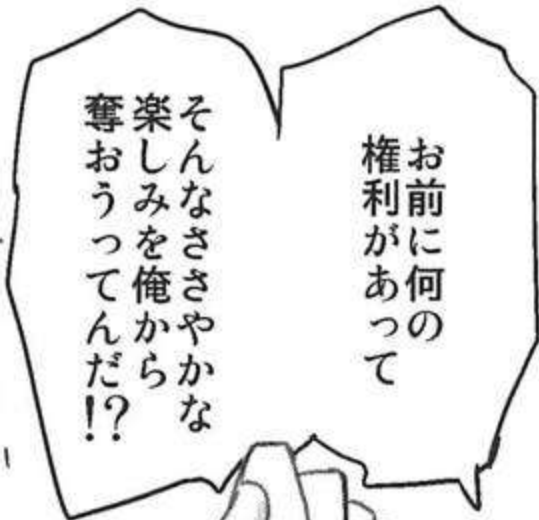 お前に何の
権利があって
そんなささやかな
楽しみを俺から
奪おうってんだ!?